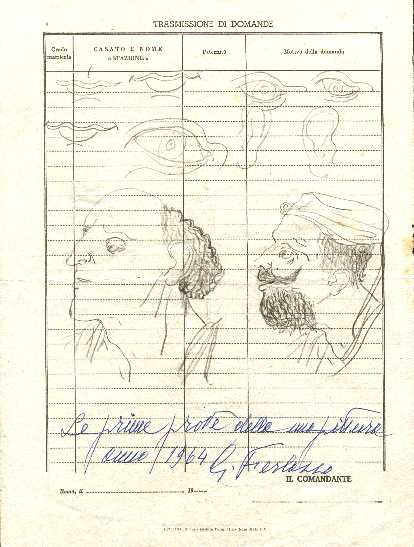 TRASMISSIONE DI DOMANDE
Grado
matricola
CASATO E NOME
« STAZIONE »
Paternità
Motivo della domanda
Le prime prove della mia pittura
anno 1964 G.
IL COMANDANTE
Roma, li 19